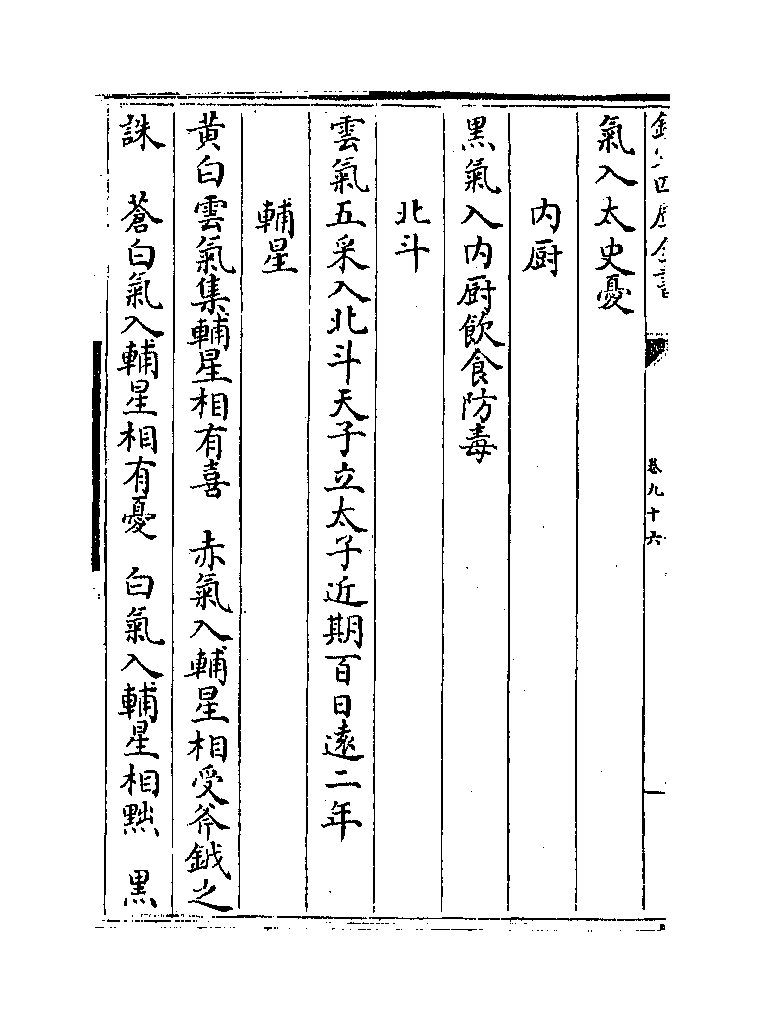 欽定四庫全書
卷九十六
氣入太史憂
内厨
黑氣入内厨飲食防毒
北斗
雲氣五采入北斗天子立太子近期百日遠二年
輔星
黄白雲氣集輔星相有喜　赤氣入輔星相受斧鉞之
誅　蒼白氣入輔星相有憂　白氣入輔星相黜　黑